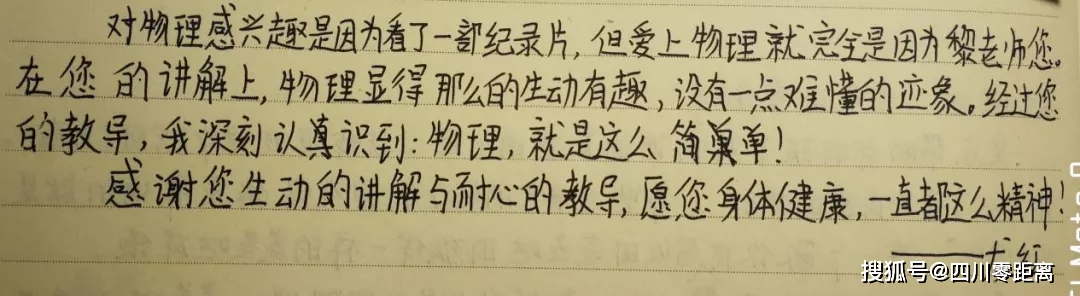 对物理感兴趣是因为看了一部纪录片，但爱上物理就完全是因为黎老师您。
在您的讲解上，物理显得那么的生动有趣，没有一点难懂的迹象。经过您
的教导，我深刻认真识到：物理，就是这么简单！
感谢您生动的讲解与耐心的教导，愿您身体健康，一直都这么精神！
搜狐号@四川零距离